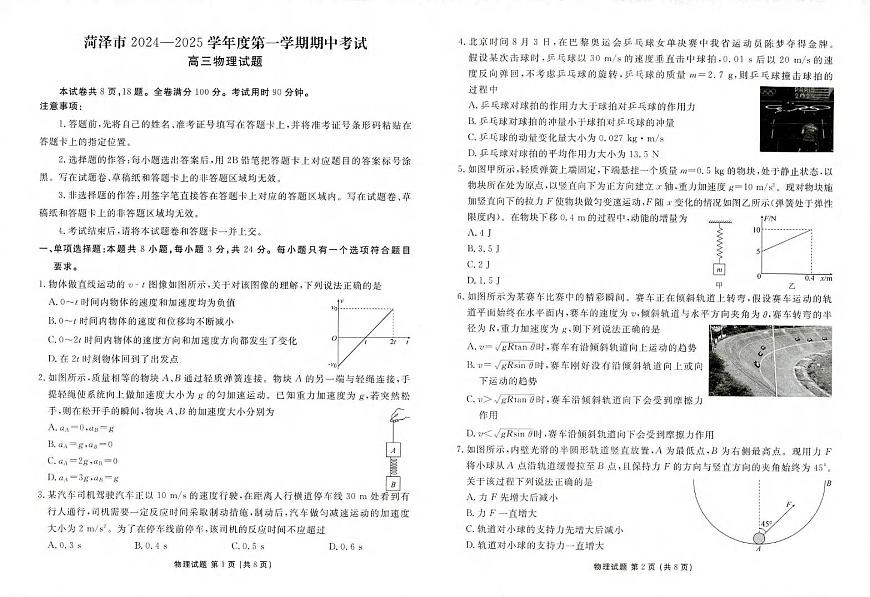 菏泽市 2024—2025 学年度第一学期期中考试
高三物理试题
本试卷共 8 页,18 题。全卷满分 100 分。考试用时 90 分钟。
注意事项:
1.答题前,先将自己的姓名、准考证号填写在答题卡上,并将准考证号条形码粘贴在
答题卡上的指定位置。
2.选择题的作答:每小题选出答案后,用 2B 铅笔把答题卡上对应题目的答案标号涂
黑。写在试题卷、草稿纸和答题卡上的非答题区域均无效。
3.非选择题的作答:用签字笔直接答在答题卡上对应的答题区域内。写在试题卷、草
稿纸和答题卡上的非答题区域均无效。
4.考试结束后,请将本试题卷和答题卡一并上交。
一、单项选择题:本题共 8 小题,每小题 3 分,共 24 分。每小题只有一个选项符合题目
要求。
1.物体做直线运动的 v-t 图像如图所示,关于对该图像的理解,下列说法正确的是
A.0~t 时间内物体的速度和加速度均为负值
B.0~t 时间内物体的速度和位移均不断减小
C.0~2t 时间内物体的速度方向和加速度方向都发生了变化
D.在 2t 时刻物体回到了出发点
v
v₀
O
t
2t
t
-v₀
2.如图所示,质量相等的物块 A、B 通过轻质弹簧连接。物块 A 的另一端与轻绳连接,手
提轻绳使系统向上做加速度大小为 g 的匀加速运动。已知重力加速度为 g,若突然松
手,则在松开手的瞬间,物块 A、B 的加速度大小分别为
A.aA=0,aB=g
B.aA=g,aB=0
C.aA=2g,aB=0
D.aA=3g,aB=g
A
B
3.某汽车司机驾驶汽车正以 10 m/s 的速度行驶,在距离人行横道停车线 30 m 处看到有
行人通行,司机需要一定反应时间采取制动措施,制动后,汽车做匀减速运动的加速度
大小为 2 m/s²。为了在停车线前停车,该司机的反应时间不应超过
A.0.3 s B.0.4 s C.0.5 s D.0.6 s
物理试题 第 1 页 (共 8 页)
4.北京时间 8 月 3 日,在巴黎奥运会乒乓球女单决赛中我省运动员陈梦夺得金牌。
假设某次击球时,乒乓球以 30 m/s 的速度垂直击中球拍,0.01 s 后以 20 m/s 的速
度反向弹回,不考虑乒乓球的旋转,乒乓球的质量 m=2.7 g,则乒乓球撞击球拍的
过程中
A.乒乓球对球拍的作用力大于球拍对乒乓球的作用力
B.乒乓球对球拍的冲量小于球拍对乒乓球的冲量
C.乒乓球的动量变化量大小为 0.027 kg·m/s
D.乒乓球对球拍的平均作用力大小为 13.5 N
PARIS
5.如图甲所示,轻质弹簧上端固定,下端悬挂一个质量 m=0.5 kg 的物块,处于静止状态,以
物块所在处为原点,以竖直向下为正方向建立 x 轴,重力加速度 g=10 m/s²。现对物块施
加竖直向下的拉力 F 使物块做匀变速运动,F 随 x 变化的情况如图乙所示(弹簧处于弹性
限度内)。在物块下移 0.4 m 的过程中,动能的增量为
A.4 J
B.3.5 J
C.2 J
D.1.5 J
m
甲
F/N
10
5
0
0.4
x/m
乙
6.如图所示为某赛车比赛中的精彩瞬间。赛车正在倾斜轨道上转弯,假设赛车运动的轨
道平面始终在水平面内,赛车的速度为 v,倾斜轨道与水平方向夹角为 θ,赛车转弯的半
径为 R,重力加速度为 g,则下列说法正确的是
A.v=√gRtan θ时,赛车有沿倾斜轨道向上运动的趋势
B.v=√gRsin θ时,赛车刚好没有沿倾斜轨道向上或向
下运动的趋势
C.v>√gRtan θ时,赛车沿倾斜轨道向下会受到摩擦力
作用
D.v<√gRsin θ时,赛车沿倾斜轨道向下会受到摩擦力作用
7.如图所示,内壁光滑的半圆形轨道竖直放置,A 为最低点,B 为右侧最高点。现用力 F
将小球从 A 点沿轨道缓慢拉至 B 点,且保持力 F 的方向与竖直方向的夹角始终为 45°。
关于该过程下列说法正确的是
A.力 F 先增大后减小
B.力 F 一直增大
C.轨道对小球的支持力先增大后减小
D.轨道对小球的支持力一直增大
B
F
45°
A
物理试题 第 2 页 (共 8 页)